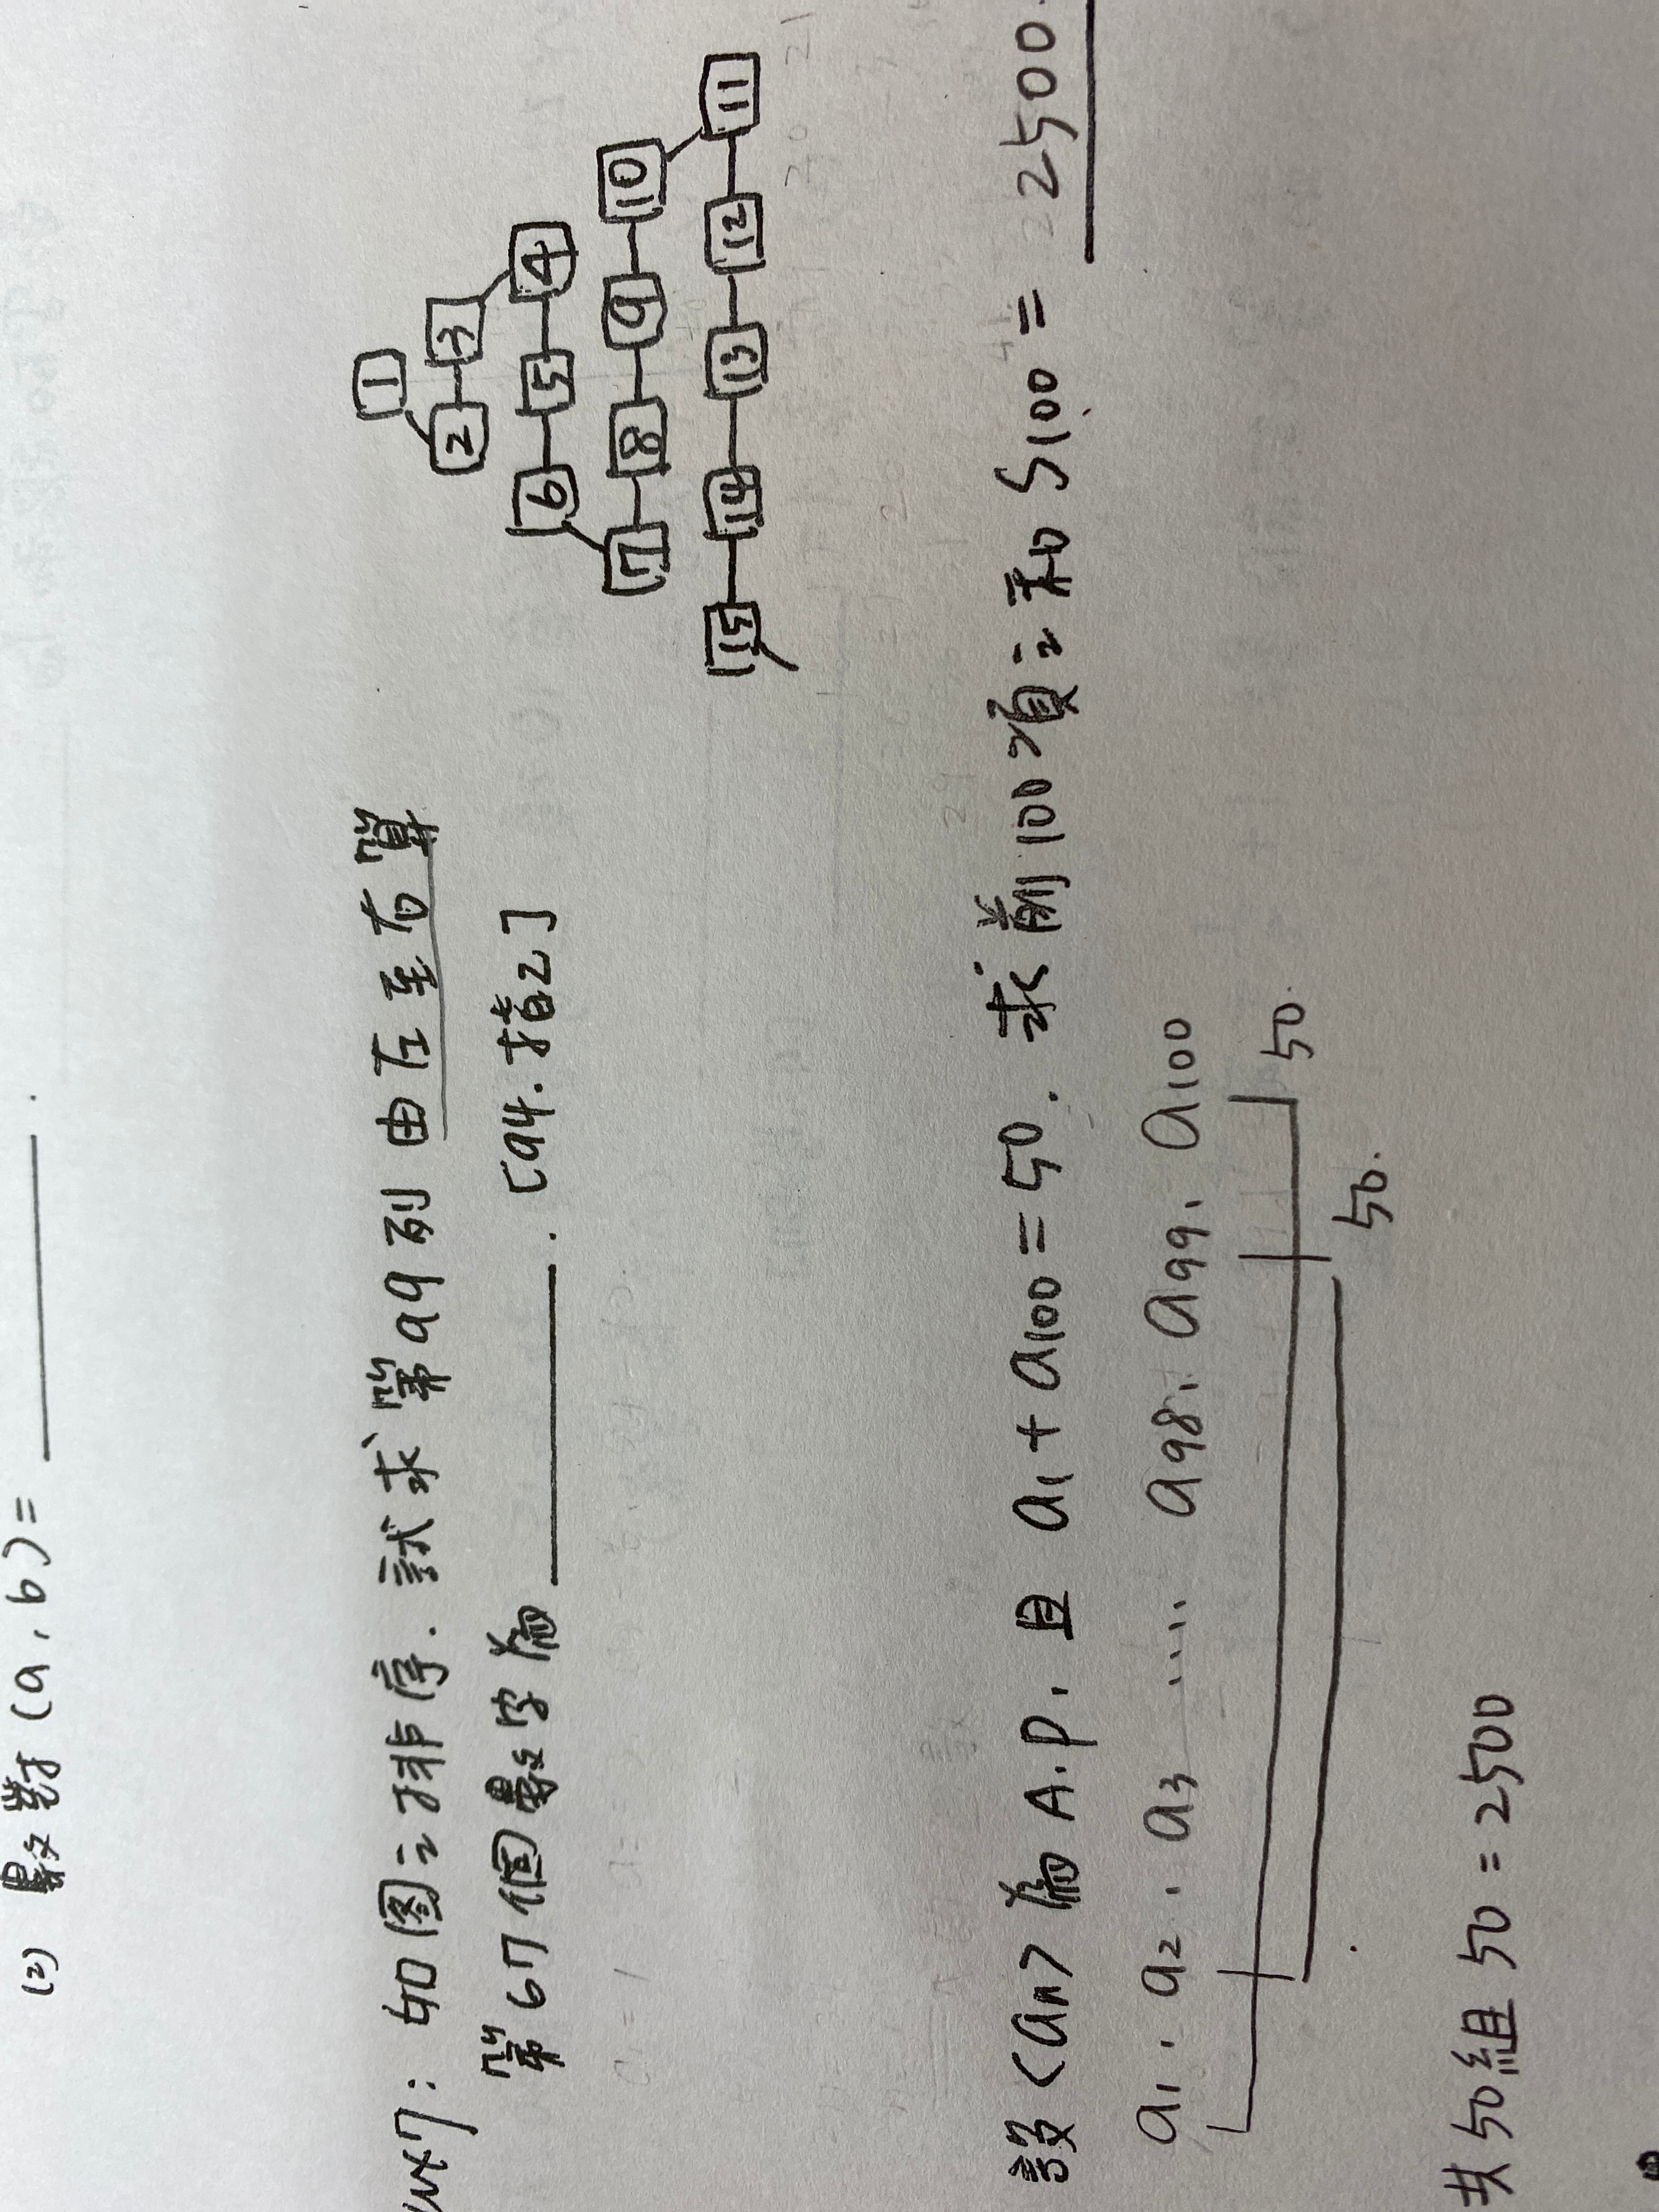 (2) 數對 (a, b) = ______.
如圖之排序. 試求第99列由左至右算
第67個數字為 ______. [94.指乙]
1
2 3
6 5 4
7 8 9 10
15 14 13 12 11
設<an>為A.P. 且 a1 + a100 = 50. 求前100項之和 S100 = 2500.
a1, a2, a3 ..... a98, a99, a100
50.
50.
共50組 50 = 2500